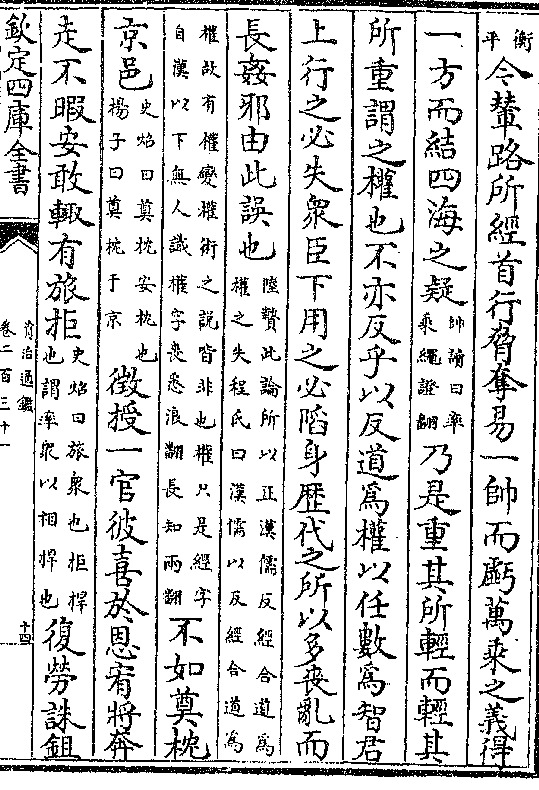 衡平令輦路所經首行脅奪易一帥而虧萬乗之義得
一方而結四海之疑帥讀曰率乘繩證翻乃是重其所輕而輕其
所重謂之權也不亦反乎以反道爲權以任數爲智君
上行之必失衆臣下用之必陷身歴代之所以多喪亂而
長姦邪由此誤也陸贄此論所以正漢儒反經合道爲權之失程氏曰漢儒以反經合道爲
權故有權變權術之說皆非也權只是經字自漢以下無人識權字喪悉浪翻長知兩翻不如奠枕
京邑史炤曰奠枕安枕也揚子曰奠枕于京徴授一官彼喜於恩宥將奔
走不暇安敢輙有旅拒史炤曰旅衆也拒捍也謂率衆以相捍也復勞誅鉏
欽定四庫全書
資治通鑑
卷二百三十一
十四